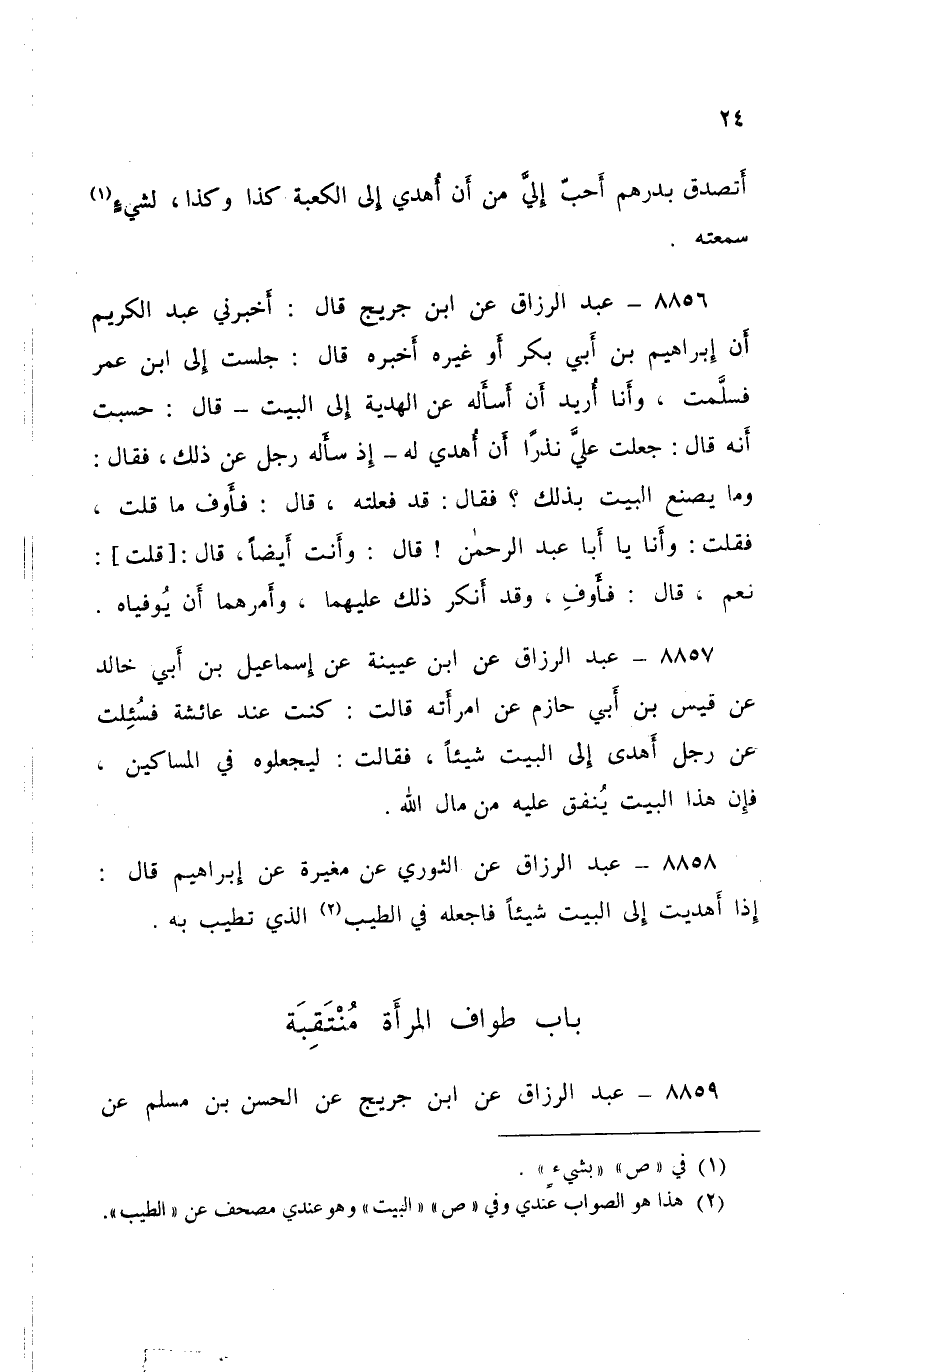 ٢٤
أَتصدق بدرهم أَحبّ إِليَّ من أَن أُهدي إِلى الكعبة كذا وكذا ، لشيءٍ(١)
سمعته .
٨٨٥٦ – عبد الرزاق عن ابن جريج قال : أَخبرني عبد الكريم
أَن إِبراهيم بن أَبي بكر أَو غيره أَخبره قال : جلست إِلى ابن عمر
فسلَّمت ، وأَنا أُريد أَن أَسأَله عن الهدية إِلى البيت – قال : حسبت
أَنه قال : جعلت عليَّ نذرًا أَن أُهدي له – إِذ سأَله رجل عن ذلك ، فقال :
وما يصنع البيت بذلك ؟ فقال : قد فعلته ، قال : فأَوف ما قلت ،
فقلت : وأَنا يا أَبا عبد الرحمٰن ! قال : وأَنت أَيضاً ، قال : [قلت] :
نعم ، قال : فأَوفِ ، وقد أَنكر ذلك عليهما ، وأَمرهما أَن يُوفياه .
٨٨٥٧ – عبد الرزاق عن ابن عيينة عن إِسماعيل بن أَبي خالد
عن قيس بن أَبي حازم عن امرأَته قالت : كنت عند عائشة فسُئِلت
عن رجل أَهدى إِلى البيت شيئاً ، فقالت : ليجعلوه في المساكين ،
فإِن هذا البيت يُنفق عليه من مال الله .
٨٨٥٨ – عبد الرزاق عن الثوري عن مغيرة عن إِبراهيم قال :
إِذا أَهديت إِلى البيت شيئاً فاجعله في الطيب(٢) الذي تطيب به .
باب طواف المرأَة مُنْتَقِبَة
٨٨٥٩ – عبد الرزاق عن ابن جريج عن الحسن بن مسلم عن
(١) في «ص» «بشيءٍ» .
(٢) هذا هو الصواب عندي وفي «ص» «البيت» وهو عندي مصحف عن «الطيب».